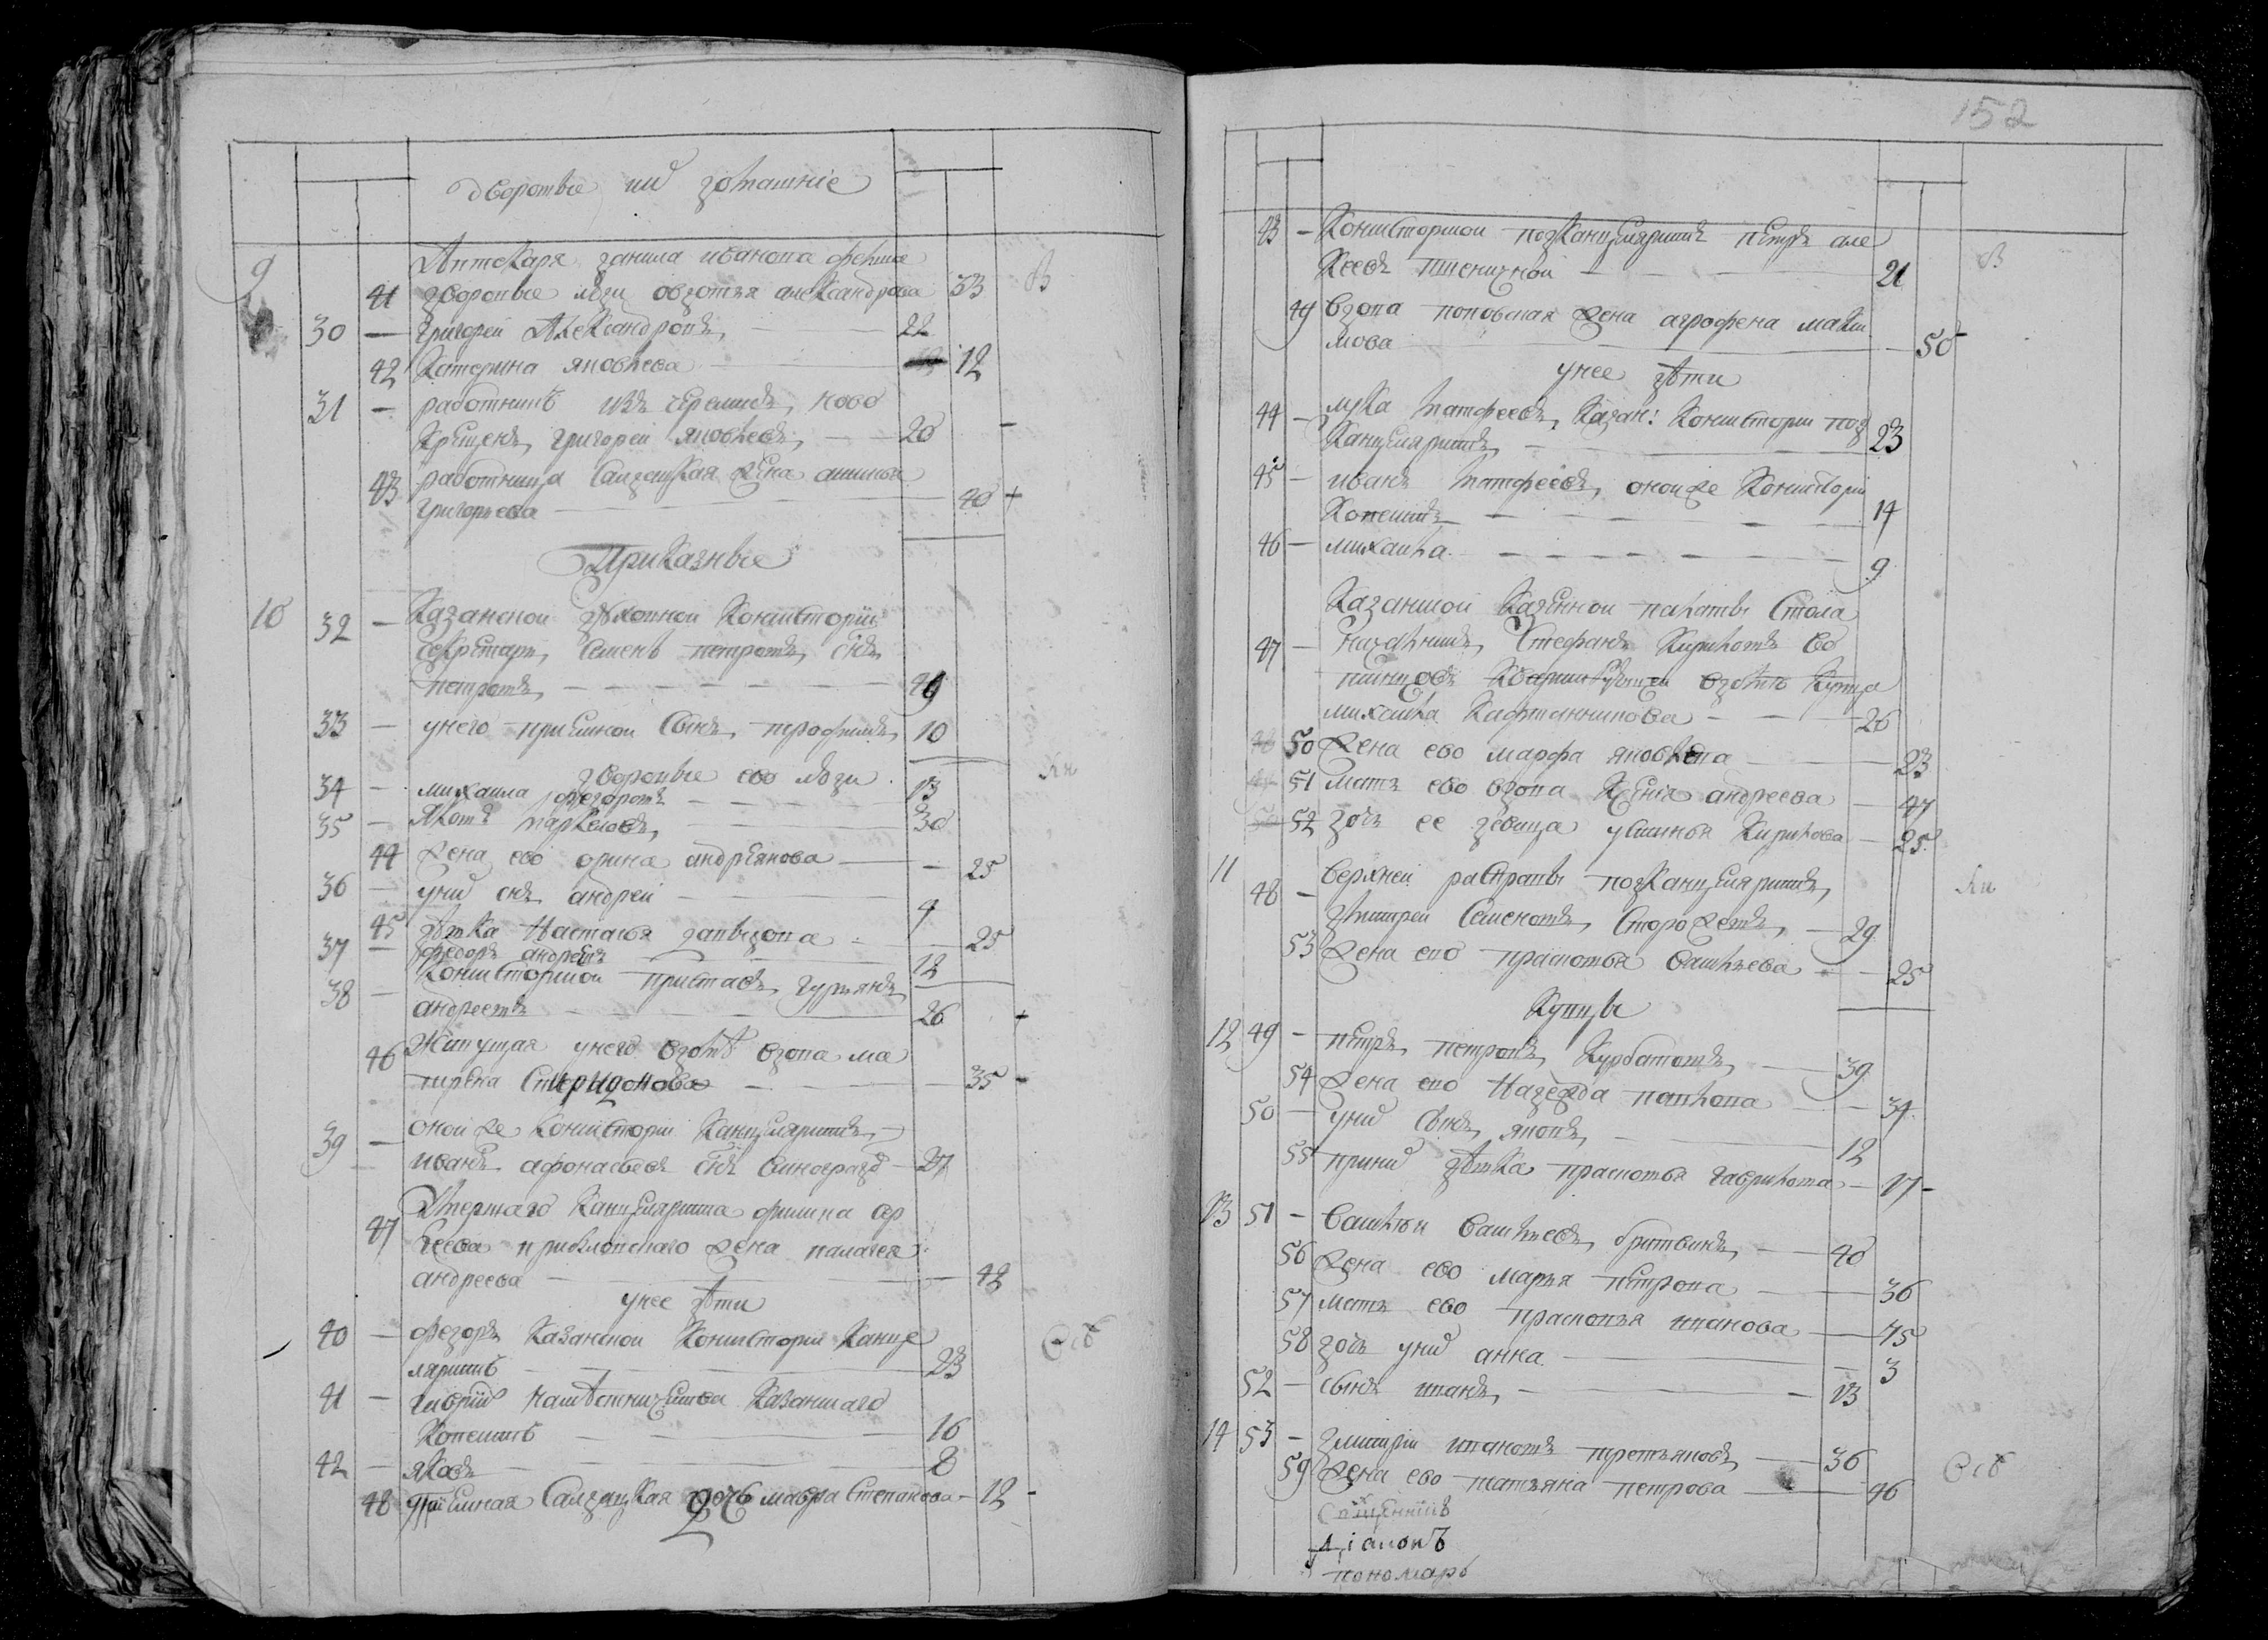 дворовые их домашнїе
9
Аптекаря данила иванова
41 дворовые люди авдотья александрова 33
30 — григорей Александровъ, — 22
42 Катерина яковлева — 12
31 — работникъ изъ черемисъ, ново
крещенъ, григорей яковлевъ, — 20
43 работница салдацкая жена
григорьева — 40 +
Приказные
10 32 — Казанской духовной Консисторїи
секретарь, семенъ петровъ, снъ
петровъ, —
33 — у него прїемной сынъ, трофимъ, 10
дворовые ево люди
34 — михаила федоровъ — 13
35 — Яковъ — 30
44 жена ево орина андреянова — 25
36 — у них снъ андрей — 4
45 дѣвка настасья давыдова — 25
37 — федоръ андреевъ — 12
38 — Консисторской приставъ, гурьянъ,
андреевъ — 26 +
46 Живущая у него вдова ма
трена Спиридонова — 35 -
39 — оной же Консисторїи Канцеляристъ,
иванъ афонасьевъ снъ виноградо — 27
47 Умершаго Канцеляриста филипа сер
геева жена палагея
андреева — 42
у нее дѣти
40 — федоръ Казанской Консисторїи Канце
ляристъ — 23
41 — намѣстническаго Казанскаго
Копеистъ — 16
42 — яковъ — 8
48 прїемная Салдацкая дочь мавра Степанова — 12 -
152
43 — Консисторской подканцеляристъ петръ але
ксеевъ пшеничной — 21
49 вдова поповская жена агрофена макси
мова — 50
у нее дѣти
44 — лука матфеевъ, Казан: Консистории под
Канцеляристъ, — 23
45 — иванъ матфеевъ, оной же Консисторїи
Копеистъ — 14
46 — михаила — 9
Казанской Казенной палаты Стола
47 — началникъ, Стефанъ Кириловъ
купца
михаила Кафтанникова — 26
50 жена ево марфа яковлева — 23
51 мать ево вдова андреева — 47
52 дочь ее девица устинья Кирилова — 25
11
48 — верхней расправы подканцеляристъ,
дмитрей Семеновъ, Сторожевъ, — 29
53 жена ево прасковья васильева — 25
Купцы
12 49 — петръ, петровъ, Курбатовъ, — 39
54 жена ево надежда павлова — 34
50 — у них сынъ, яковъ, — 12
55 при них дѣвка прасковья гаврилова — 17 -
13 51 — василеи васильевъ, бритвинъ, — 40
56 жена ево марья петрова — 36
57 мать ево прасковья иванова — 75
58 дочь у них анна — 3
52 — сынъ иванъ, — 13
14 53 — дмитрїи ивановъ третьяковъ, — 36
59 жена ево татьяна петрова — 46
Священникъ
Дїаконъ
пономарь